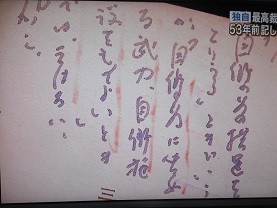 独自 最高裁
53年前記し
自衛の為の措置を
とりうる」といい
が、「自衛の為に必要
な武力、自衛施
設をもってよいとま
では云はない